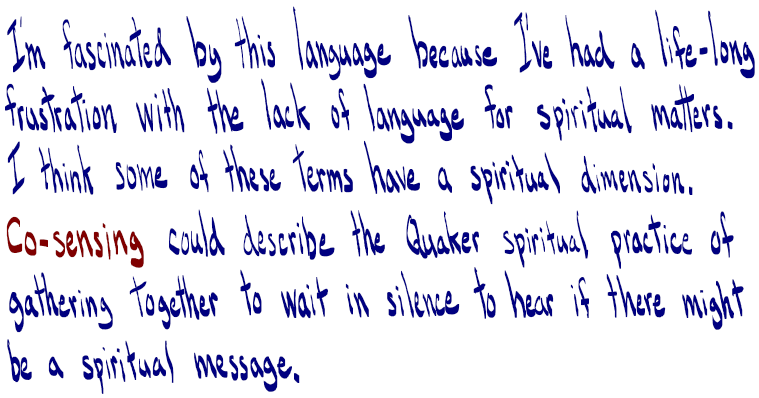 I'm fascinated by this language because I've had a life-long
frustration with the lack of language for spiritual matters.
I think some of these terms have a spiritual dimension.
Co-sensing could describe the Quaker spiritual practice of
gathering together to wait in silence to hear if there might
be a spiritual message.